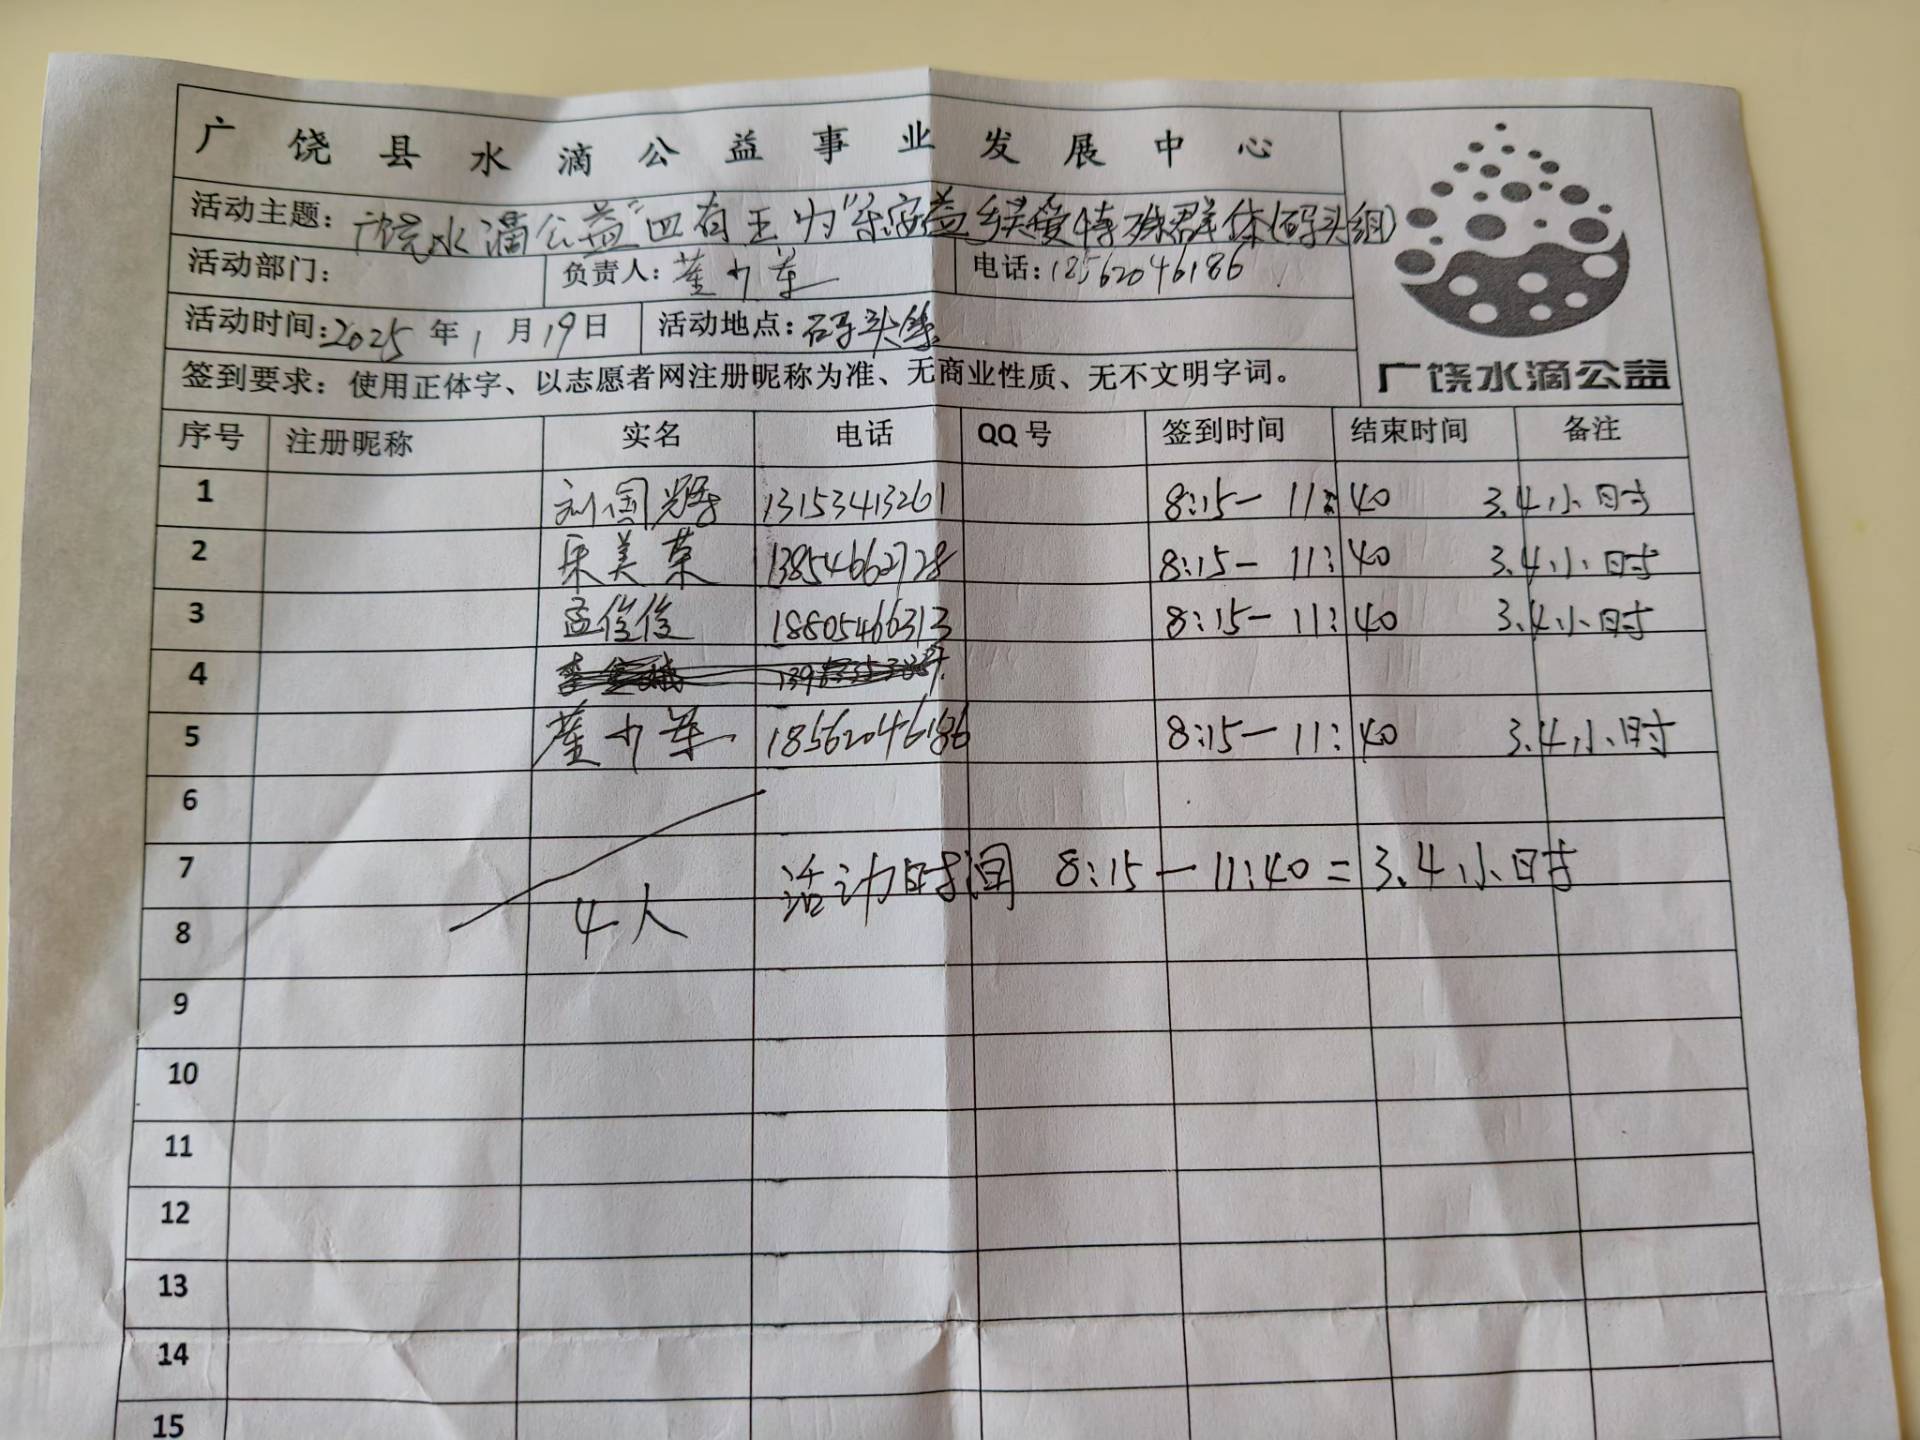 广饶县水滴公益事业发展中心
活动主题：广饶水滴公益“四有五为”乐安益乡关爱特殊群体(码头组)
活动部门： 负责人：董少华 电话：18562046186
活动时间：2025年1月19日 活动地点：码头镇
签到要求：使用正体字、以志愿者网注册昵称为准、无商业性质、无不文明字词。
广饶水滴公益
序号 注册昵称 实名 电话 QQ号 签到时间 结束时间 备注
1 刘国 13153413261 8:15— 11:40 3.4小时
2 美荣 13854662728 8:15— 11:40 3.4小时
3 孟俊俊 18805466313 8:15— 11:40 3.4小时
4
5 董少华 18562046186 8:15— 11:40 3.4小时
6
7 活动时间 8:15—11:40=3.4小时
8 4人
9
10
11
12
13
14
15